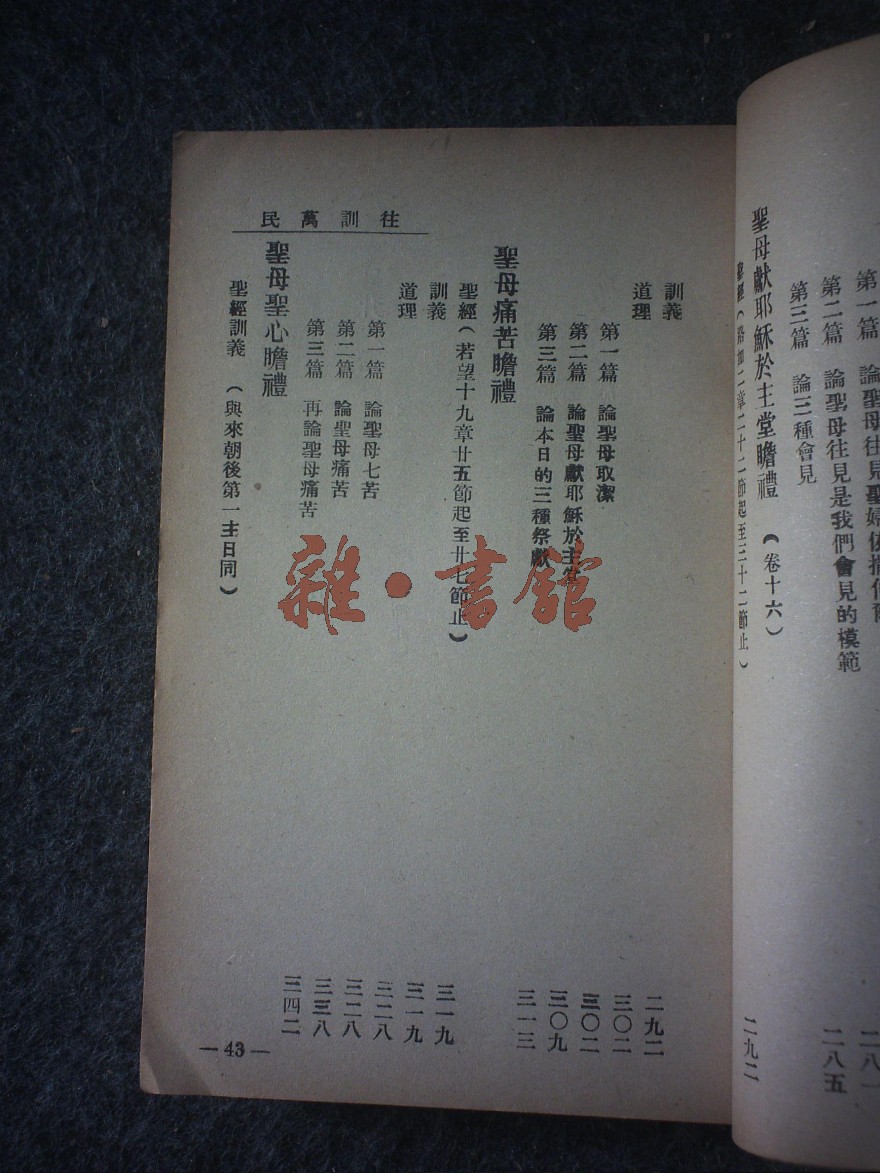 第一篇 論聖母往見聖婦依撒伯 二八一
第二篇 論聖母往見是我們會見的模範 二八五
第三篇 論三種會見
聖母獻耶穌於主堂瞻禮 (卷十六)
聖經 (路加二章二十二節起至三十二節止) 二九二
往訓萬民
訓義 二九二
道理 三〇二
第一篇 論聖母取潔 三〇二
第二篇 論聖母獻耶穌於主堂 三〇九
第三篇 論本日的三種祭獻 三一三
聖母痛苦瞻禮
聖經 (若望十九章廿五節起至廿七節止) 三一九
訓義 三一九
道理 三二八
第一篇 論聖母七苦 三二八
第二篇 論聖母痛苦 三三八
第三篇 再論聖母痛苦 三四二
聖母聖心瞻禮
聖經訓義 (與來朝後第一主日同)
— 43 —
雜·書館